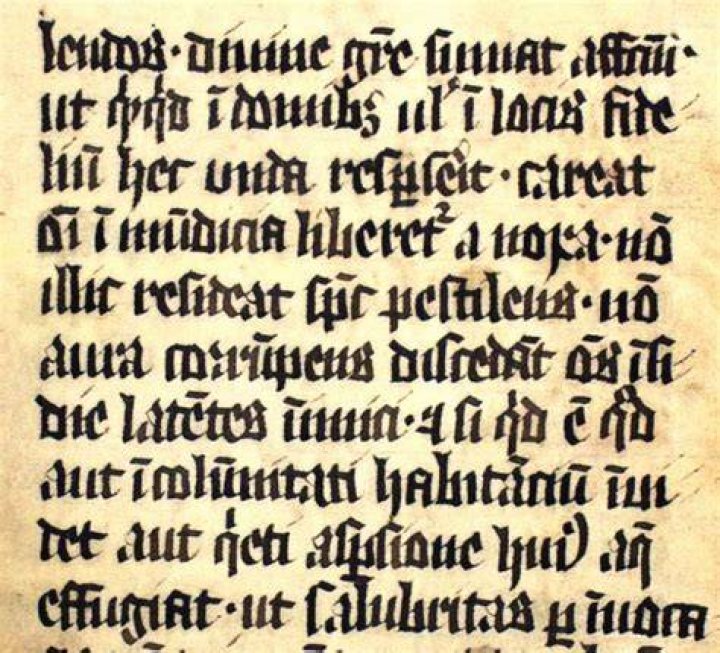 lendos· diuine gr̅e sumat affectū·
ut q̇cq̇d ī domibꝫ ul' ī locis fide
liū hec unda resꝑserit· careat
oī īmūdicia liberet² a noxa· nō
illic resideat spc̄ pestilens· nō
aura corrūpens discedāt oēs īsi
die latētes īimici· ⁊ si q̇d ē q̇d
aut īcolūmitati habitāciū īui
det aut q̇eti asꝑsione hui⁹ aq̄
effugiat· ut salubritas ꝑ īuoca